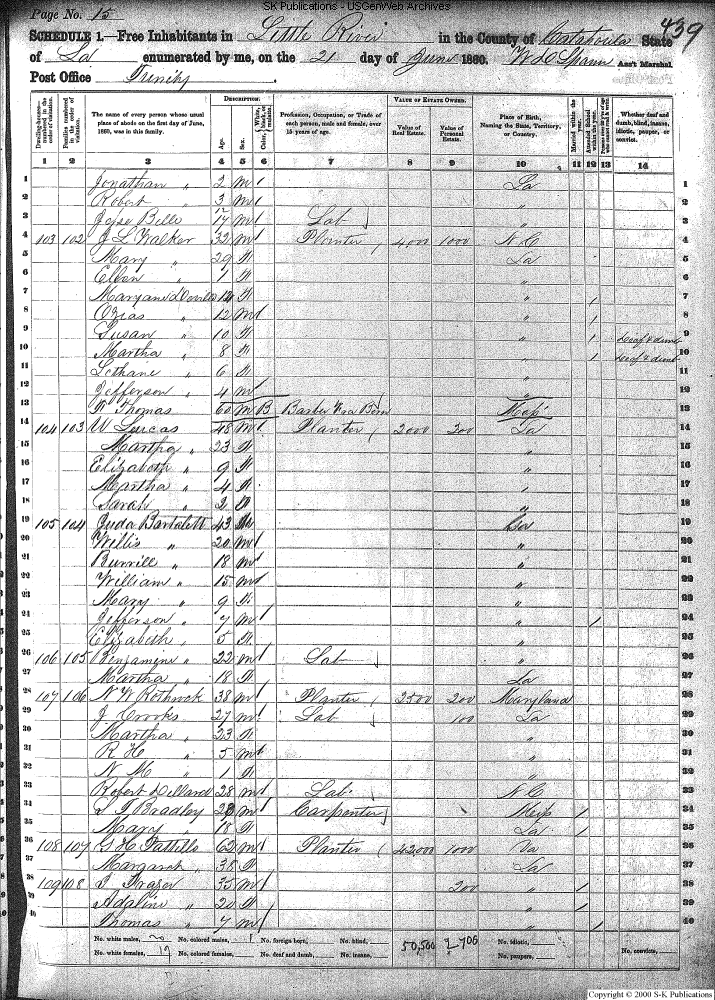 SK Publications - USGenWeb Archives
Page No. 15
439
SCHEDULE 1.—Free Inhabitants in Little River in the County of Catahoula State
of La enumerated by me, on the 21 day of June 1860. Ass't Marshal
Post Office Trinity.
DESCRIPTION. VALUE OF ESTATE OWNED.
Dwelling-houses—numbered in the order of visitation.
Families numbered in the order of visitation.
The name of every person whose usual place of abode on the first day of June, 1860, was in this family.
Age.
Sex.
Color,
Profession, Occupation, or Trade of each person, male and female, over 15 years of age.
Value of Real Estate.
Value of Personal Estate.
Place of Birth, Naming the State, Territory, or Country.
Married within the year.
Attended School within the year.
Whether deaf and dumb, blind, insane, idiotic, pauper, or convict.
1 2 3 4 5 6 7 8 9 10 11 12 13 14
1 Jonathan " 2 m La 1
2 Robert " 3 m " 2
3 Jesse Bille 17 m Lab " 3
4 103 102 J L Walker 32 m Planter 4000 1000 N C 4
5 Mary " 29 f La 5
6 Ellen " 1 f " 6
7 12 f " / 7
8 Ozias " 12 m " / 8
9 Susan " 10 f " / deaf & dumb 9
10 Martha " 8 f " / deaf & dumb 10
11 " 6 f " 11
12 Jefferson " 4 m " 12
13 Thomas 60 m B Barber Free Born Miss 13
14 104 103 W Lucas 48 m Planter 2000 300 La 14
15 Martha " 23 f " 15
16 Elizabeth " 9 f " 16
17 Martha " 4 f " 17
18 Sarah " 2 f " 18
19 105 104 Juda Bartalett 43 Geo 19
20 Willis " 20 m " 20
21 Burrill " 18 m " 21
22 William " 15 m " 22
23 Mary " 9 f " 23
24 Jefferson " 7 m " / 24
25 Elizabeth " 5 f " 25
26 106 105 Benjamine " 22 m Lab " 26
27 Martha " 18 f La 27
28 107 106 N W Rothrock 38 m Planter 2500 200 Maryland 28
29 J Crooks 27 m Lab 100 La 29
30 Martha " 23 f " 30
31 R H " 5 m " 31
32 N M " 1 f " 32
33 Robert Dillard 28 m Lab N C 33
34 Bradley 28 m Carpenter Miss / 34
35 Mary " 18 f La / 35
36 108 107 G H Pattillo 62 m Planter 42000 1000 Va 36
37 Margarah " 38 f La 37
38 109 108 Frazer 35 m 200 " / 38
39 Adaline " 20 f " / 39
40 Thomas " 7 m " / 40
No. white males, 20 No. colored males, 1 No. foreign born, No. blind, 50,500 2700 No. idiotic,
No. white females, 19 No. colored females, No. deaf and dumb, No. insane, No. paupers, No. convicts,
Copyright © 2000 S-K Publications